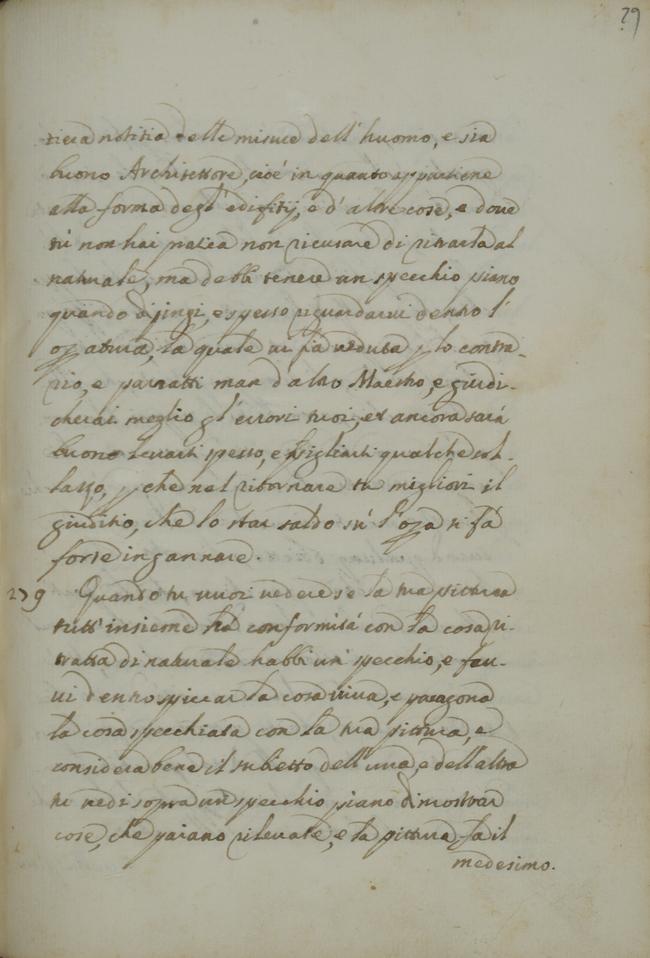 29
tiera notitia delle misure dell'huomo, e sia
buono Architettore, cioè in quanto appartiene
alla forma degl'edifitij, e d'altre cose, e doue
tù non hai pratica non ricusare di ritrarla al
naturale, ma debbi tenere un specchio piano
quando dipingi, e spesso riguardarui dentro l'
opa tua, la quale ui fia ueduta p lo contra-
rio, e parratti man d'altro Maestro, e giudi-
cherai meglio gl'errori tuoi, et ancora sarà
buono leuarti spesso, e pigliarti qualche sol-
lazzo, p che nel ritornare tu migliori il
giuditio, che lo star saldo sù l'opa ti fà
forte ingannare.
279 Quando tu uuoi uedere se la tua pittura
tutt'insieme hà conformità con la cosa ri-
tratta di naturale habbi un specchio, e fau-
ui dentro spiccar la cosa uiua, e paragona
la cosa specchiata con la tua pittura, e
considera bene il subietto dell'una, e dell'altra
tu uedi sopra un specchio piano dimostrar
cose, che paiano rileuate, e la pittura fa il
medesimo.